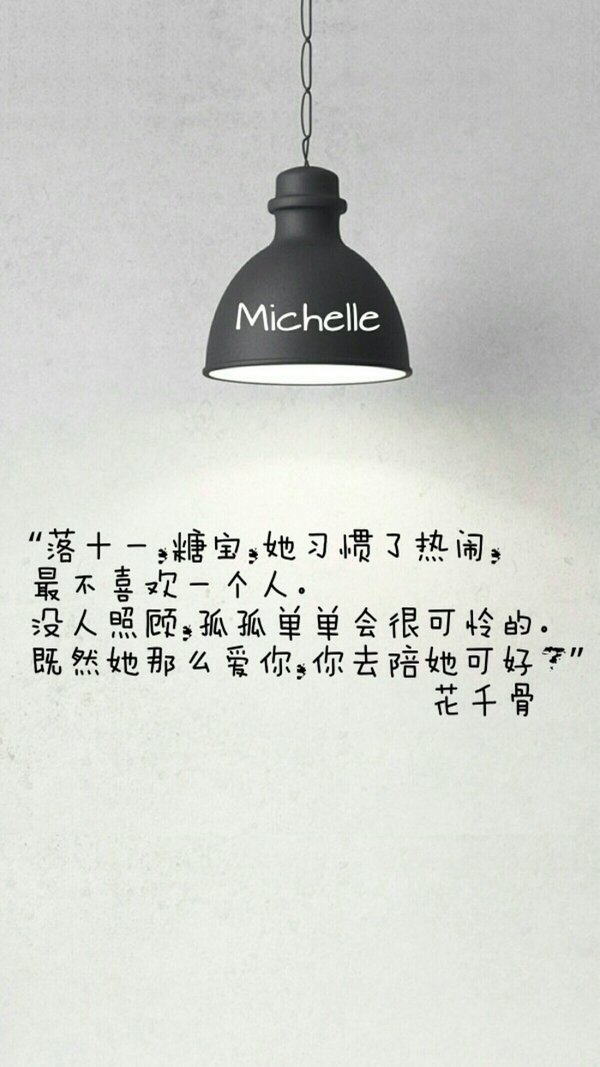 Michelle
“落十一,糖宝,她习惯了热闹,
最不喜欢一个人。
没人照顾,孤孤单单会很可怜的。
既然她那么爱你,你去陪她可好?”
花千骨